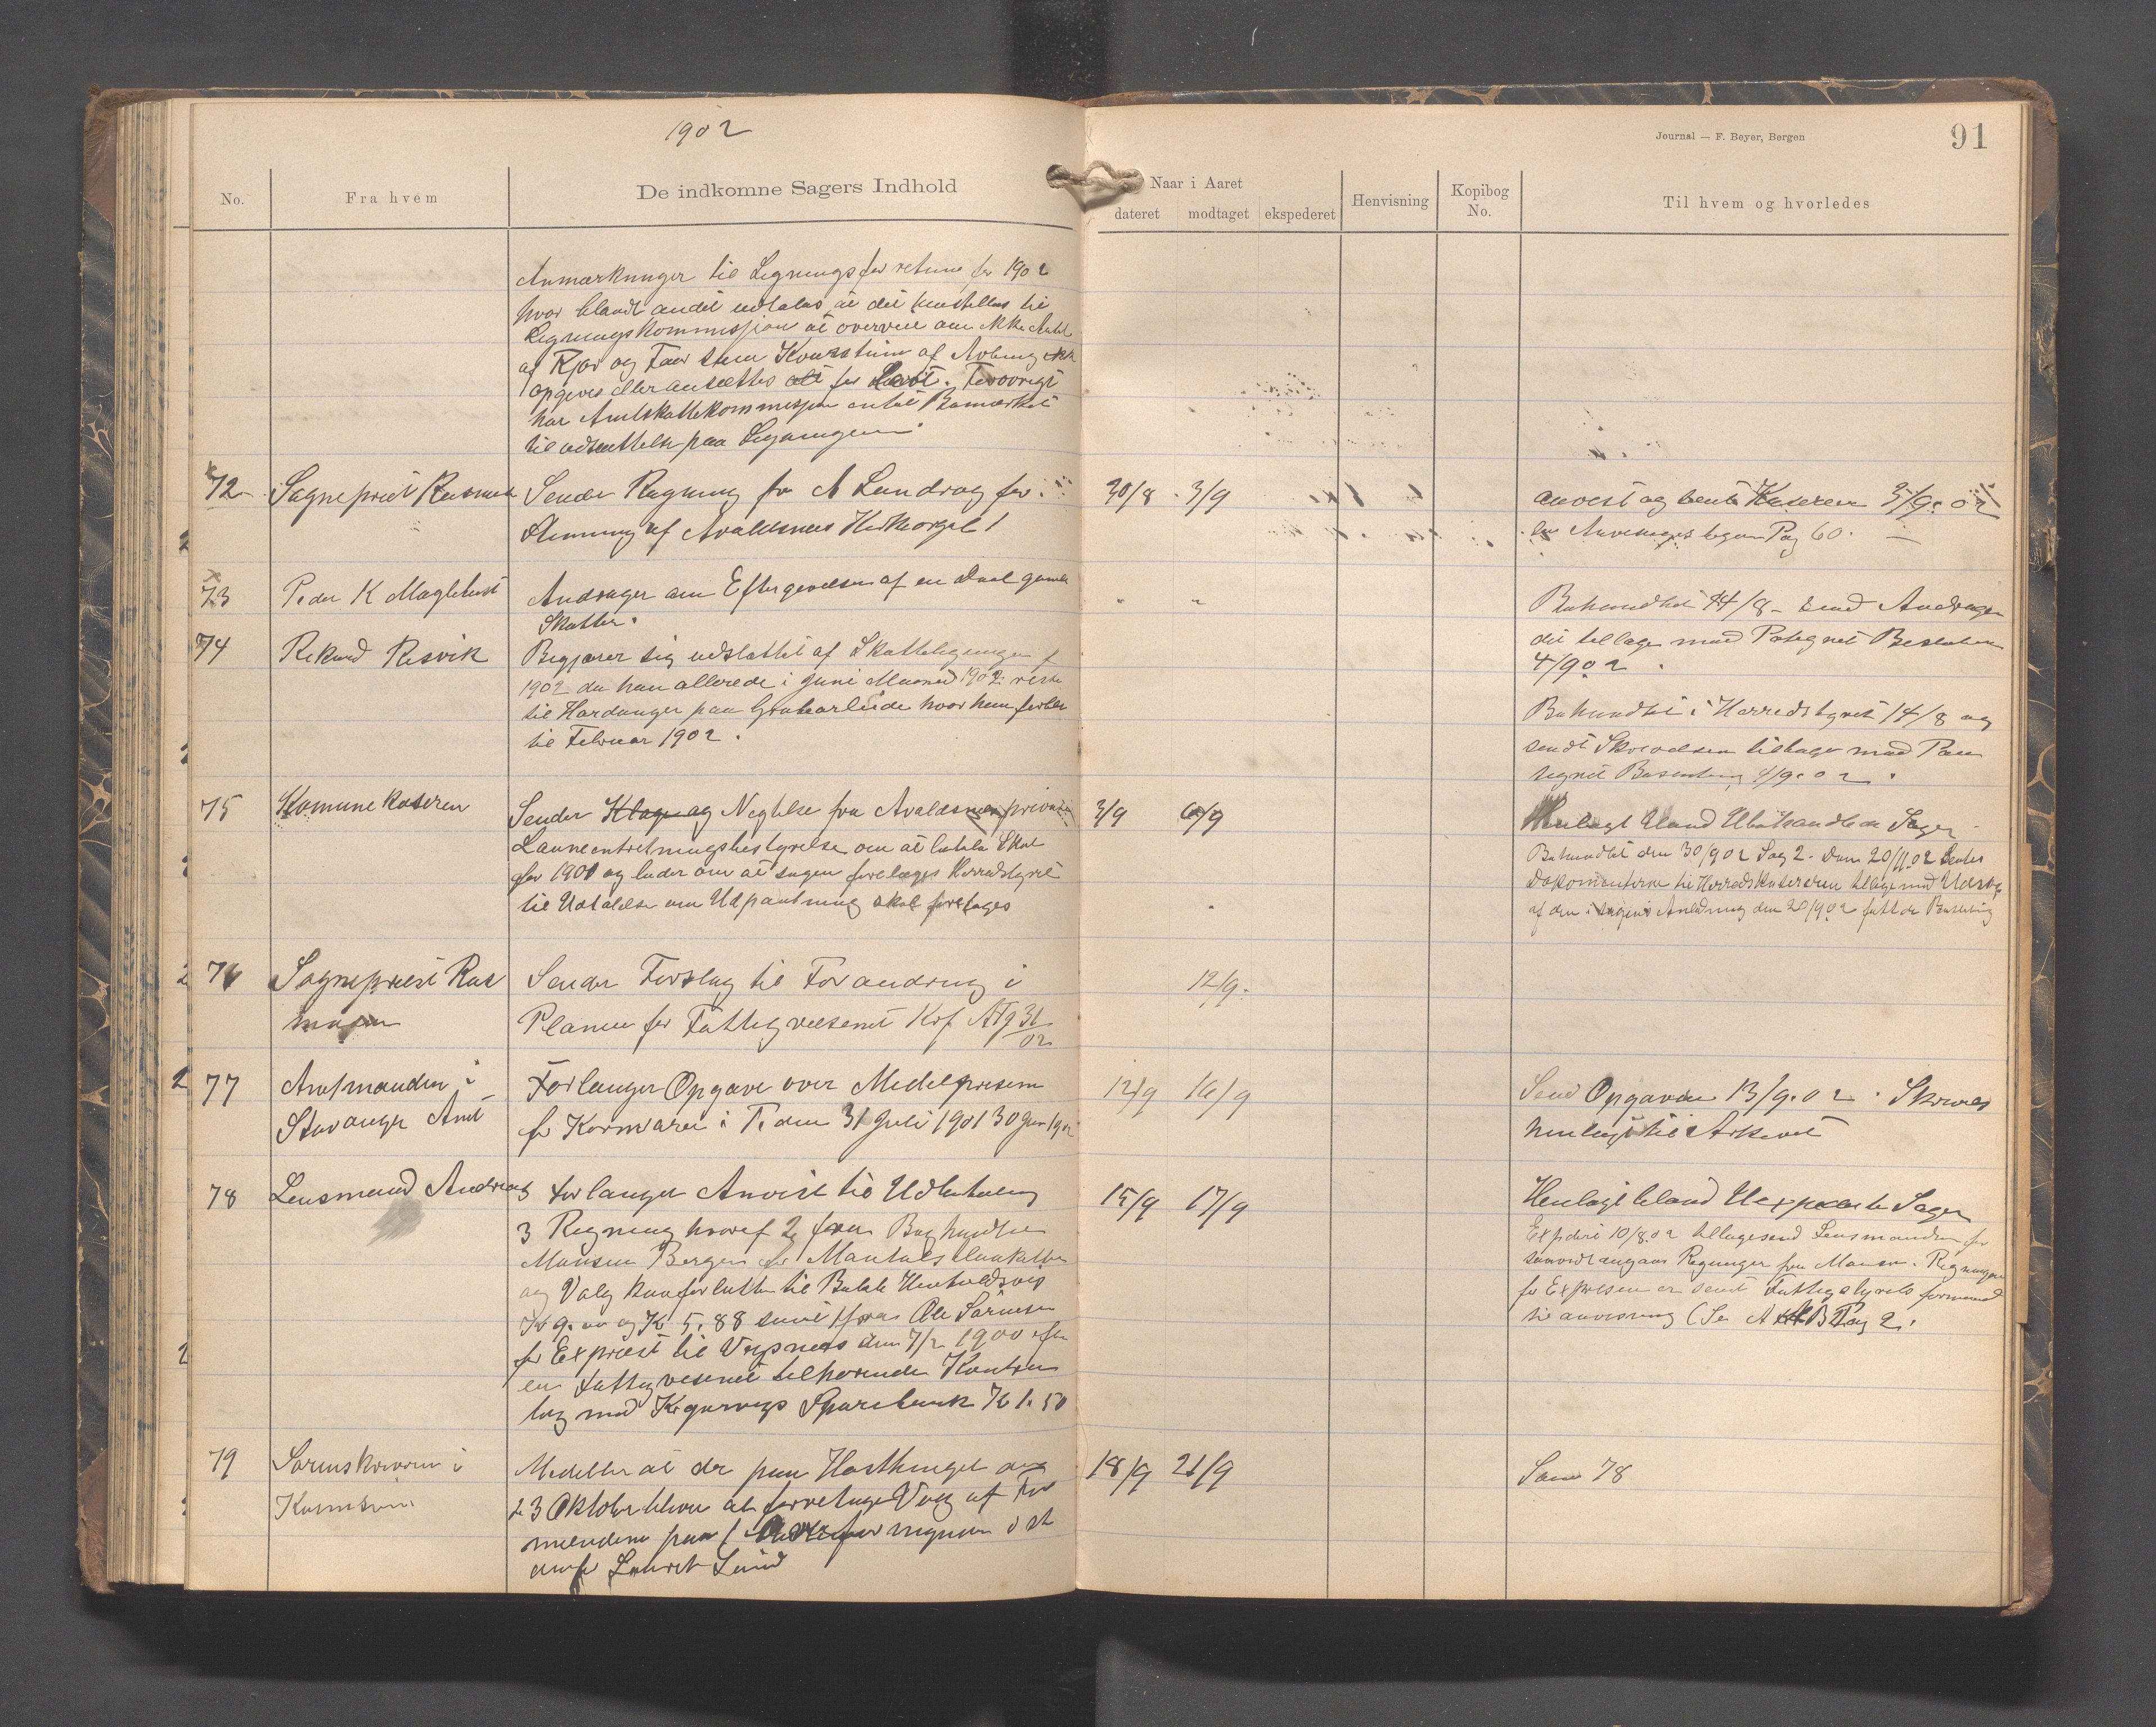 1902
Journal — F. Beyer, Bergen
91
No.
Fra hvem
De indkomne Sagers Indhold
Naar i Aaret
dateret
modtaget
ekspederet
Henvisning
Kopibog No.
Til hvem og hvorledes
Anmærkninger til Ligningsforretning for 1902
hvor blandt andet udtales at det henstilles til
Ligningskommissjon at overveie om ikke Antal
af Kjør og Faar
opgives eller ansættes alt for lavt. Forøvrigt
har Amtskattekommissjon intet Bemærket
til udsættelse paa Ligningen
72
Sognepræst Rasmus
Sender Regning fra A Landrog for
Stemning af Avaldsnes Kirkorgel
30/8
3/9
anvist og sendt Kaseren 3/9. 02
Pag 60.
73
Peder K
Andrager om Eftergivelse af en Deel gamle
Skatter.
"
"
Behandlet 14/8 - Send Andragen
det tilbage med Paategnet Beslutn
4/902
74
Rikard Risvik
Begjærer sig udslættet af Skatteligningen f
1902 da han allerede i Juni Maaned 1902 reiste
til Hardanger paa Grubearbeide hvor han forblev
til Februar 1902.
Behandlet i Herredstyret 14/8 og
sendt Skrivelsen tilbage med Paa
tegnet Beslutning 4/9. 02.
75
Komune kaseren
Sender Klage og Negtelse fra Avaldsnes private
Launeindretningsbestyrelse om at betale Skat
for 1901 og beder om at sagen forelægges Herredstyret
til Udtalelse om Udpantning skal foretages
3/9
6/9
Henlagt bland Ubehandlede Sager
Behandlet den 30/902 Sag 2. Den 20/11 02 Sendes
Dokomenterne til Herredskasereren tillige med Udskr
af den i sagens Anledning den 20/902 fattede Beslutning
76
Sognepræst Ras
mussen
Sender Forslag til Forandring i
Planen for Fattigvæsenet Krf
12/9.
77
Amtmanden i
Stavanger Amt
Forlanger Opgave over Medelprisern
for Kornvarer i Tiden 31 Juli 1901 30 Juni 1902
12/9
16/9
Send Opgaven 13/9. 02. Skrives
henlagt til Arkivet
78
Lensmand Andreas
Forlanger Anvist til Udbetaling
3 Regning hvoraf 2 fra Boghandler
Monsen Bergen for Mantalsblanketter
og Valg
Kr 9. og Kr 5,88 samt 1 fra Ole Sørensen
for Expræst til Vigsnes den 7/2 1900 efter
en Fattigvæsenet tilhørende Kontra
bog med Kopervigs Sparebank Kr 1.50
15/9
17/9
Henlagt bland Uexpederte Sager
Expederi 10/8.02 tilbagesend Lensmanden
Regninger fra Monsen. Regningen
for Expressen er sendt Fattigstyrets formand
til anvisning (Se A B Pag 2.
79
Sorenskriveren i
Karmsund
Medeler at der paa Høstthinget den
23 Oktober bliver at foretage Valg af For
mændene
Lauret Lind
18/9
21/9
Samme 78